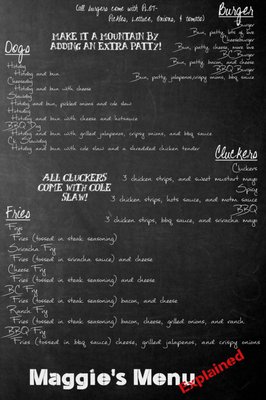 (all burgers come with PLOT-
Pickles, Lettuce, Onions, & tomato)
Burger
MAKE IT A MOUNTAIN BY
ADDING AN EXTRA PATTY!
Burger
Bun, patty, bite of live
Cheeseburger
Bun, patty, cheese, more live
BC Burger
Bun, patty, bacon, and cheese
BBQ Burger
Bun, patty, jalapenos, crispy onions, bbq sauce
Dogs
Hotdog
Hotdog and bun
Cheesedog
Hotdog and bun with cheese
Slawdog
Hotdog and bun, pickled onions and cole slaw
Hotdog and bun with cheese and hotsauce
BBQ Dog
Hotdog and bun with grilled jalapenos, crispy onions, and bbq sauce
Ch Slawdog
Hotdog and bun with cole slaw and a shredded chicken tender
Cluckers
ALL CLUCKERS
COME WITH COLE
SLAW!
Cluckers
3 chicken strips, and sweet mustart mayo
Spicy
3 chicken strips, hots sauce, and notra sauce
BBQ
3 chicken strips, bbq sauce, and sriracha mayo
Fries
Frys
Fries (tossed in steak seasoning)
Sriracha Fry
Fries (tossed in sriracha sauce) and cheese
Cheese Fry
Fries (tossed in steak seasoning) and cheese
BC Fry
Fries (tossed in steak seasoning) bacon, and cheese
Ranch Fry
Fries (tossed in steak seasoning) bacon, cheese, grilled onions, and ranch
BBQ Fry
Fries (tossed in bbq sauce) cheese, grilled jalapenos, and crispy onions
Maggie's Menu
Explained